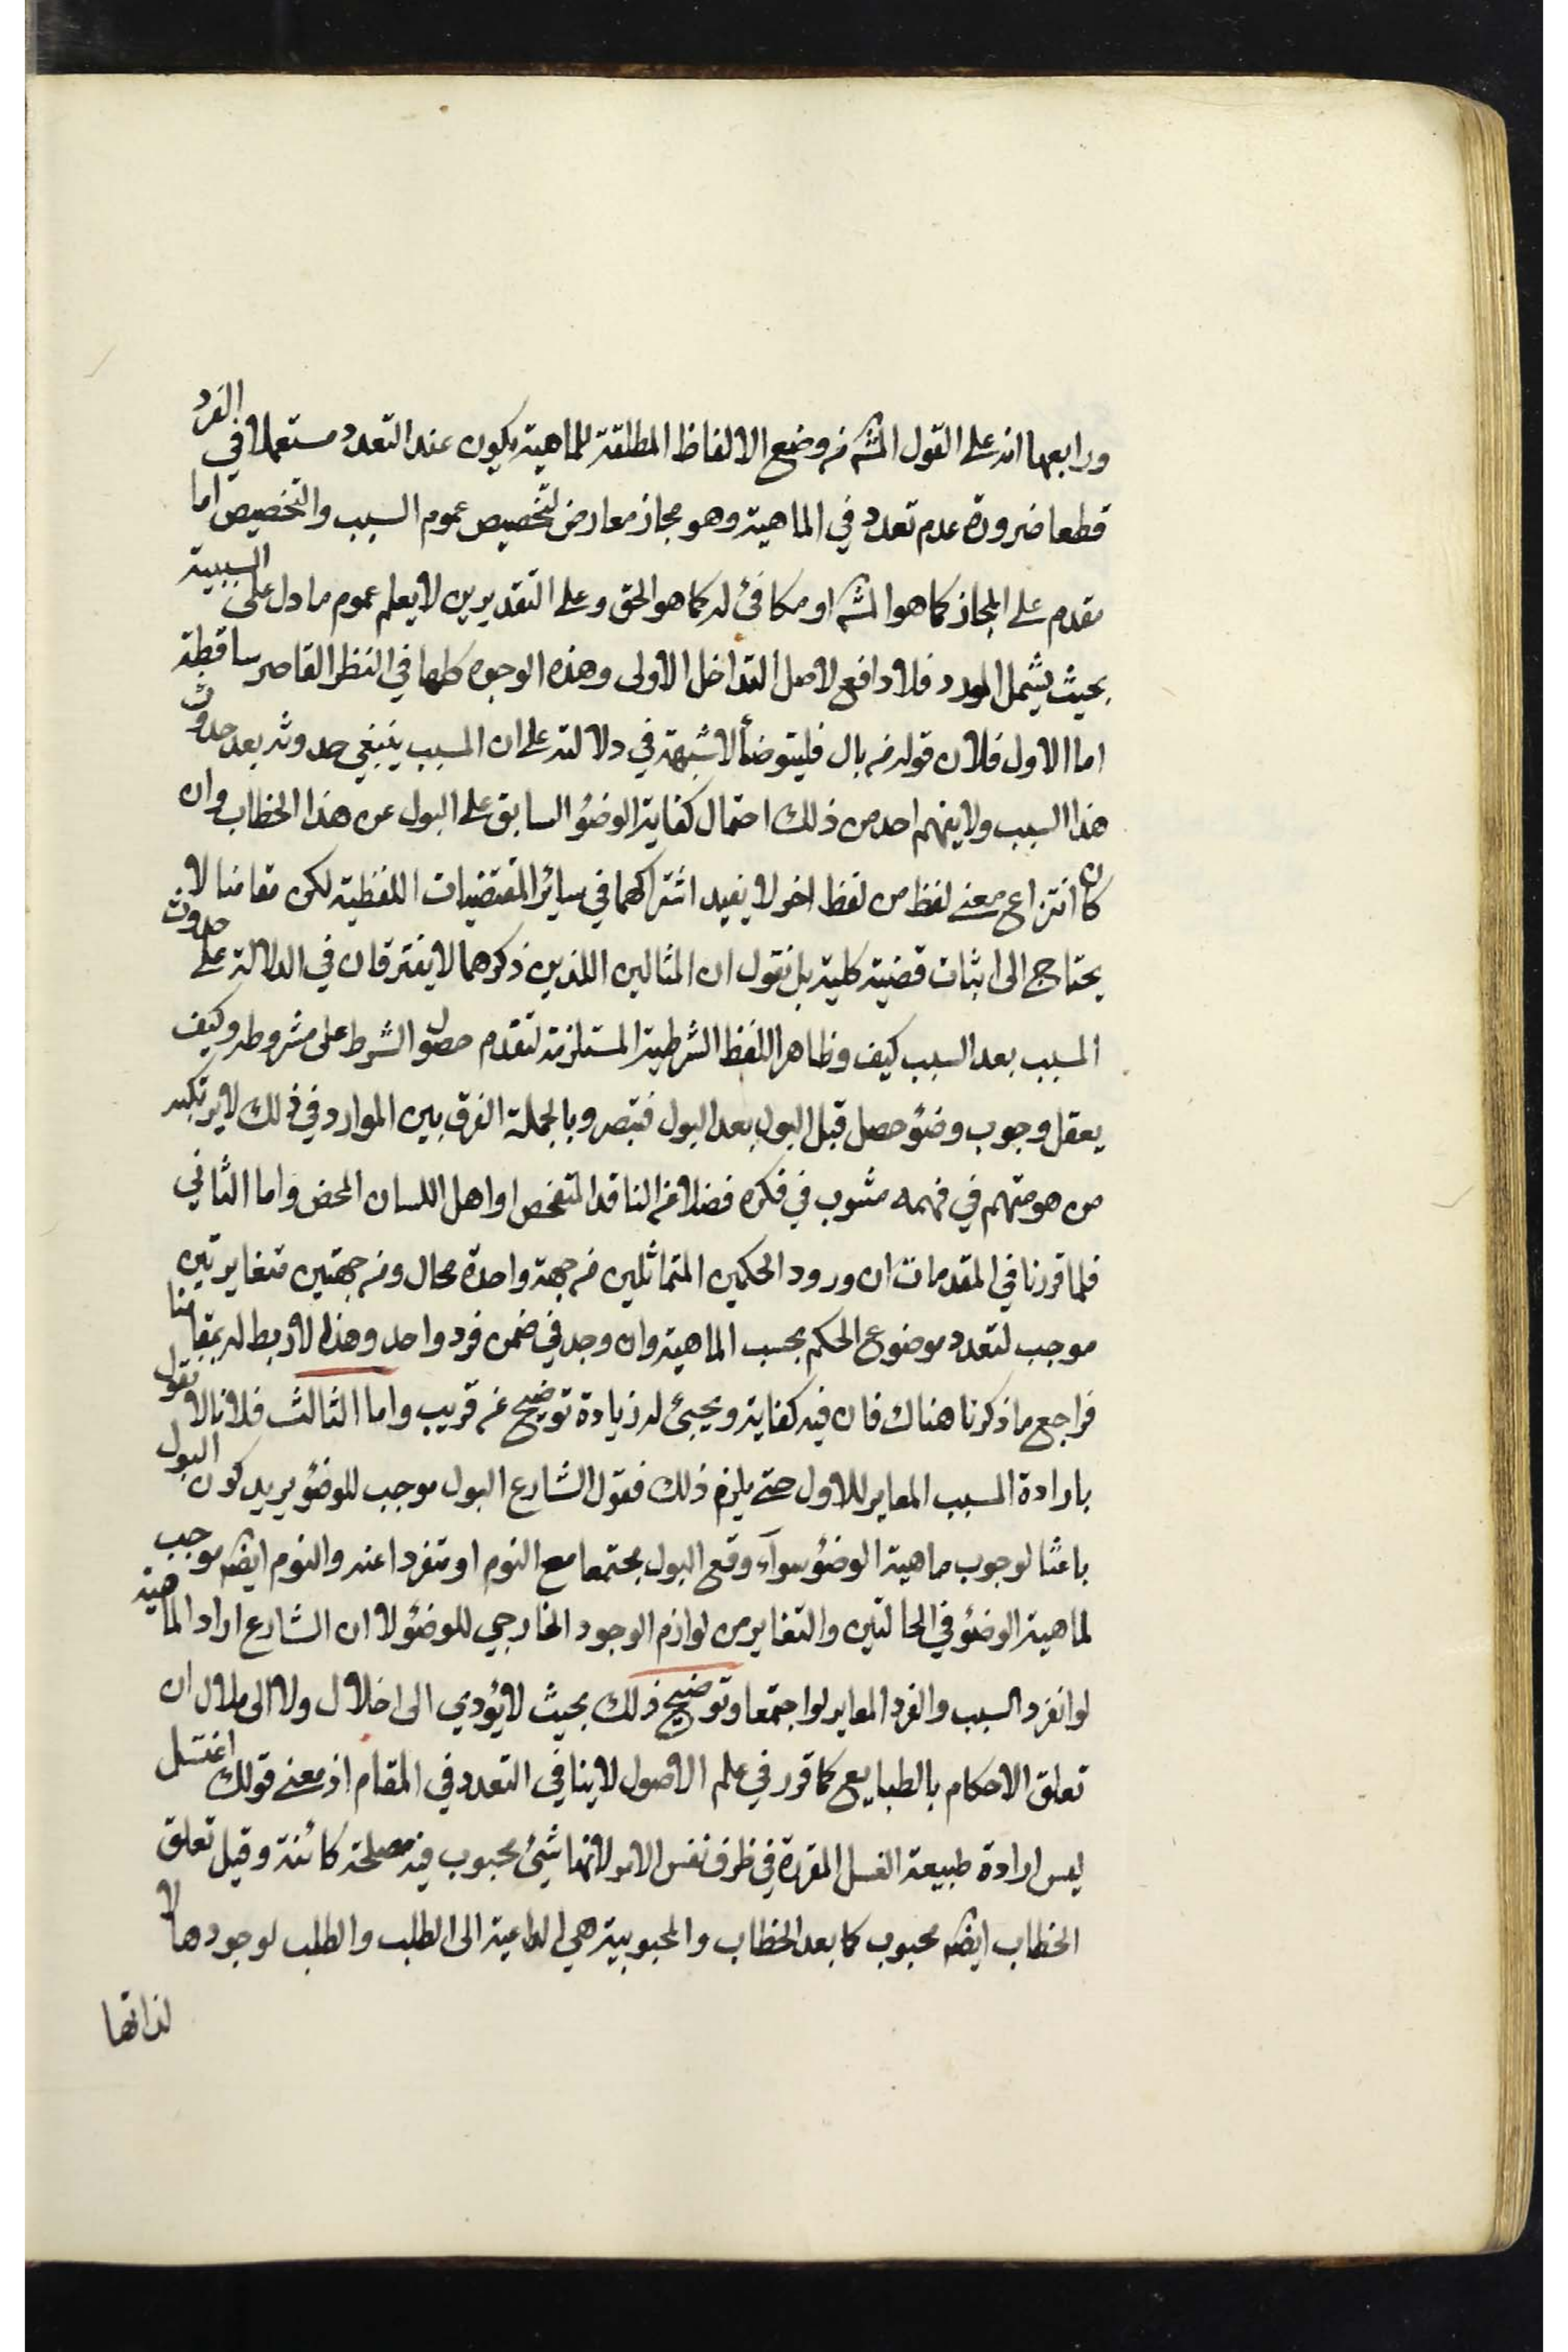 ورابعها انه على القول المشه من وضع الالفاظ المطلقة للماهية يكون عند التعدد مستعملا في الفرد
قطعا ضرورة عدم تعدد في الماهية وهو مجاز معارض لتخصيص عموم السبب والتخصيص اما
مقدم على المجاز كما هو المشه او مكافئ له كما هو الحق وعلى التقديرين لا يعلم عموم ما دل على السببية
بحيث يشمل المورد فلا دافع لاصل التداخل الاولى وهذه الوجوه كلها في النظر القاصر ساقطة
اما الاول فلان قوله من بال فليتوضأ لا شبهة في دلالته على ان المسبب ينبغي حدوثه بعد حدوث
هذا السبب ولا يفهم احد من ذلك احتمال كفاية الوضؤ السابق على البول عن هذا الخطاب وان
كان انتزاع معنى لفظ من لفظ اخر لا يفيد اشتراكهما في سائر المقتضيات اللفظية لكن مقامنا لا
يحتاج الى اثبات قضية كلية بل نقول ان المثالين اللذين ذكرهما لا يفترقان في الدلالة على حدوث
المسبب بعد السبب كيف وظاهر اللفظ الشرطية المستلزمة لتقدم حصول الشرط على مشروطه وكيف
يعقل وجوب وضؤ حصل قبل البول بعد البول فتبصر وبالجملة الفرق بين الموارد في ذلك لا يرتكبه
من هو متهم في فهمه مشوب في فكره فضلا عن الناقد المتفحص او اهل اللسان المحض واما الثاني
فلما قررنا في المقدمات ان ورود الحكمين المتماثلين من جهة واحدة محال ومن جهتين متغايرتين
موجب لتعدد موضوع الحكم بحسب الماهية وان وجد في ضمن فرد واحد وهذا لا ربط له بمقامنا
فراجع ما ذكرنا هناك فان فيه كفاية ويجيئ له زيادة توضيح عن قريب واما الثالث فلانا لا نقول
بارادة المسبب المغاير للاول حتى يلزم ذلك فقول الشارع البول موجب للوضؤ يريد كون البول
باعثا لوجوب ماهية الوضؤ سواء وقع البول مجتمعا مع النوم او متفردا عنه والنوم ايضه موجب
لماهية الوضؤ في الحالتين والتغاير من لوازم الوجود الخارجي للوضؤ لا ان الشارع اراد الماهية
لو انفرد السبب والفرد المغاير لو اجتمعا وتوضيح ذلك بحيث لا يؤدي الى اخلال ولا الى ملال ان
تعلق الاحكام بالطبايع كما قرر في علم الاصول لا ينافي التعدد في المقام اذ معنى قولك اغتسل
ليس ارادة طبيعة الغسل المقررة في ظرف نفس الامر لانها شيئ محبوب فيه مصلحة كائنة وقبل تعلق
الخطاب ايضه محبوب كما بعد الخطاب والمحبوبية هي الداعية الى الطلب والطلب لوجودها لا
لذاتها